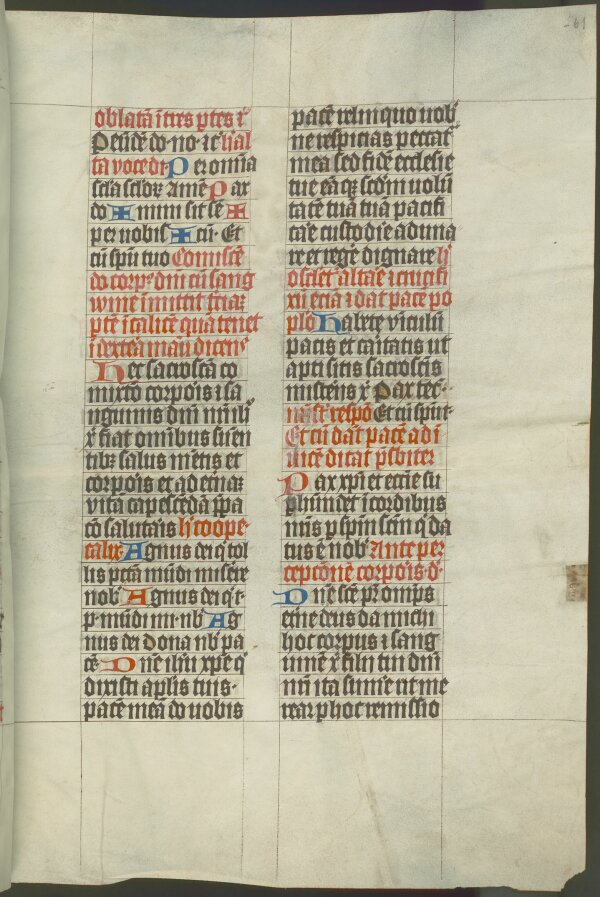 61
oblatā ī tres ptes ⁊
do ✠ mini sit sē ✠
per uobis ✠ cū· Et
cū spū tuo Cōmiscē
do corp⁹ dn̄i cū sang
wine inmittit
ptē ī calicē quā tenet
ī dextra manu dicens
Hec sacrosctā cō
mixtō corpois ⁊ sā
nguinis dn̄i nr̄i ih̄u
x̄ fiat omībus sumē
tibꝫ salus mētis et
corpois et ad etnā
vitā capescēdā p̄pa
cō salutais
calix Agnus dei q̄ tol
lis pctā mūdi misere
nob̄ Agnus dei q̄ t·
p· mūdi mi· nb̄ Ag
nus dei dona nb̄ pa
cē· Dn̄e ih̄u xp̄e q̄
dixisti aplis tuis·
pacē meā do uobis
pacē relinquo uob̄
ne respicias pecca
mea sed fidē ecclesie
tue eāqꝫ scd̄m uolū
tatē tuā pacifi
cāe custodīe aduna
re et regē dignare
xū ⁊ dat pacē po
plo Habete viculū
pacis et caitatis ut
apti sitis sacroscīs
mistēiis x̄ Pax tec·
Et cū spu·
Et cū dat pacē adi
uicē dicat p̄sbiter
Pax xp̄i et eccīe su
phūndet ī cordibus
nr̄is p sp̄m scm̄ q̄ da
tus ē nob̄ Ante per
cepcōnē corpois d·
Dn̄e scē pr̄ omps
etn̄e deus da michi
hoc corpus ⁊ sang
uinē x̄ filii tui dn̄i
nr̄i ita sumē ut me
rear p hoc remissio